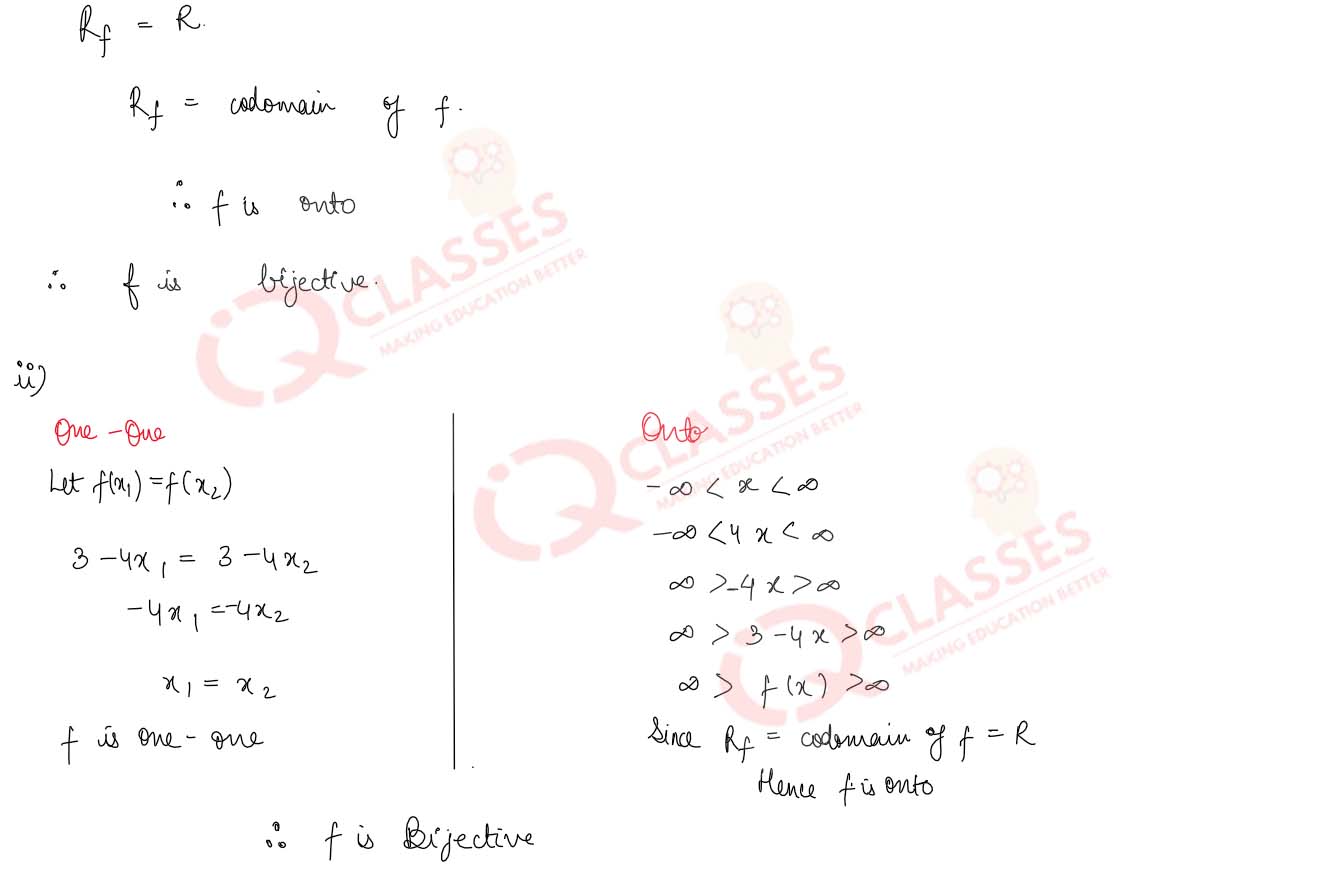 R_f = R.
R_f = codomain of f.
∴ f is onto
∴ f is bijective.
ii)
One-One
Let f(x₁) = f(x₂)
3 - 4x₁ = 3 - 4x₂
-4x₁ = -4x₂
x₁ = x₂
f is one-one
Onto
-∞ < x < ∞
-∞ < 4x < ∞
∞ > -4x > ∞
∞ > 3 - 4x > ∞
∞ > f(x) > ∞
Since R_f = codomain of f = R
Hence f is onto
∴ f is Bijective
iQ CLASSES
MAKING EDUCATION BETTER
iQ CLASSES
MAKING EDUCATION BETTER
iQ CLASSES
MAKING EDUCATION BETTER